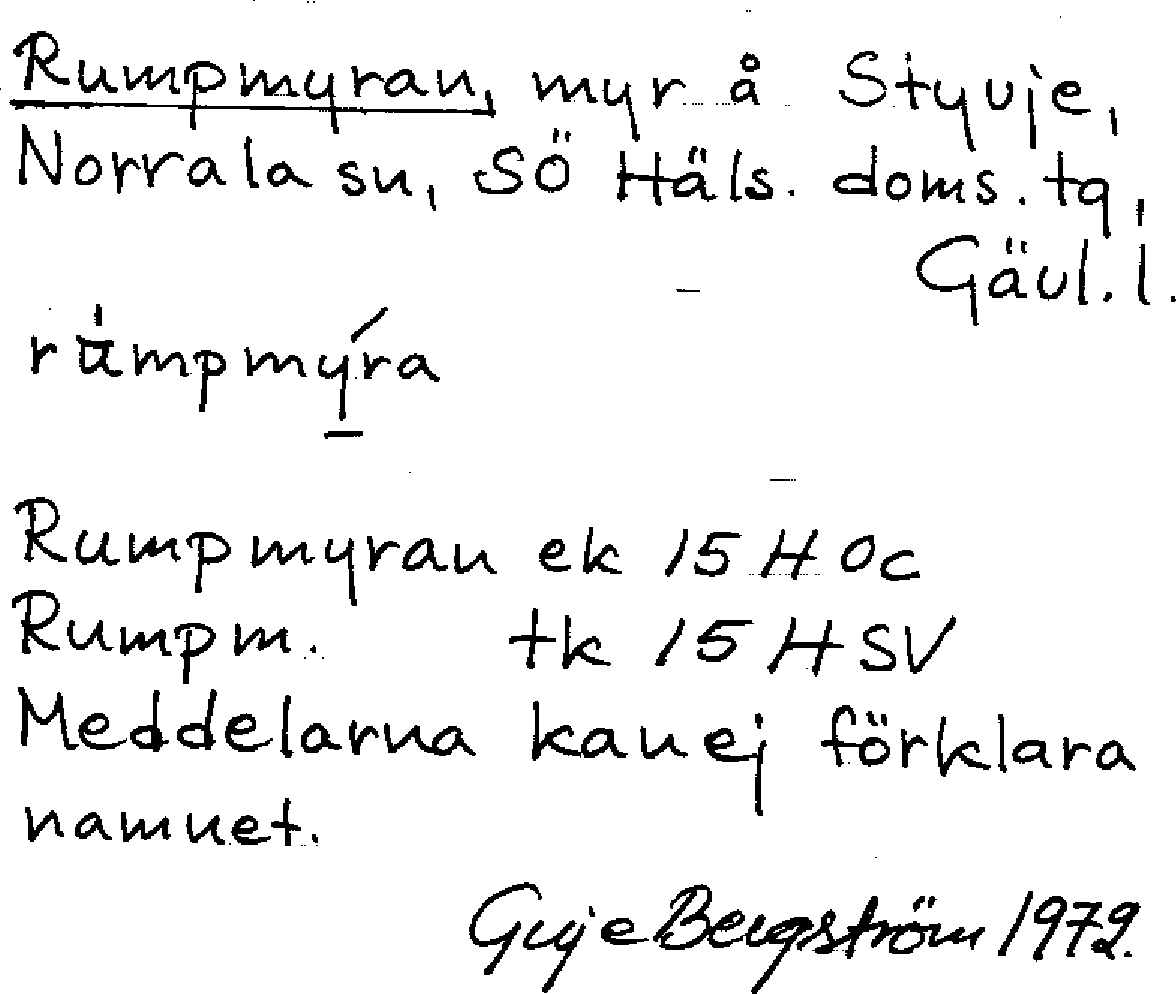 Rumpmyran, myr å Styvje,
Norrala sn, SÖ Häls. doms. tg,
Gävl. l.
ru̇mpmýra
Rumpmyran ek 15 H 0c
Rumpm. tk 15 H SV
Meddelarna kan ej förklara
namnet.
Bergström 1972.